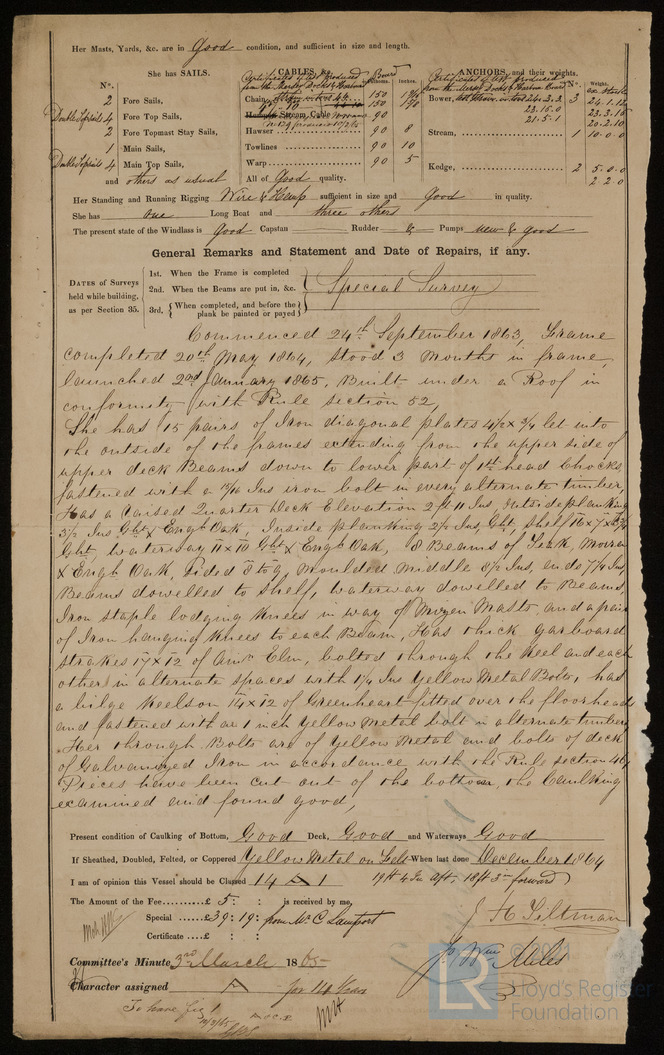 Her Masts, Yards, &c. are in Good condition, and sufficient in size and length.
She has SAILS.
CABLES, &c.
ANCHORS, and their weights.
N°.
2 Fore Sails,
Double Topsails 4 Fore Top Sails,
2 Fore Topmast Stay Sails,
1 Main Sails,
Double Topsails 4 Main Top Sails,
and others as usual
Certificates of test produced
from the Mersey Docks & Harbour Board
Fathoms. Inches.
Chain 150
150
Stream Cable 90
Hawser 90 8
Towlines 90 10
Warp 90 5
All of Good quality.
Certificates of test produced
from the Mersey Docks & Harbour Board
N°. Weight.
ex. stock
Bower, 3 24.1.12
23.3.15
20.2.10
Stream, 1 10.0.0
Kedge, 2 5.0.0
2 2 0
Her Standing and Running Rigging Wire & Hemp sufficient in size and good in quality.
She has one Long Boat and three others
The present state of the Windlass is good Capstan Rudder & Pumps new & good
General Remarks and Statement and Date of Repairs, if any.
DATES of Surveys
held while building,
as per Section 35.
1st. When the Frame is completed
2nd. When the Beams are put in, &c.
3rd. {When completed, and before the plank be painted or payed}
Special Survey
Commenced 24th September 1863, Frame
completed 20th May 1864, stood 3 months in frame,
launched 2nd January 1865, Built under a Roof in
conformity with Rule section 52,
She has 15 pairs of Iron diagonal plates 4½ x ¾ let into
the outside of the frames extending from the upper side of
upper deck Beams down to lower part of 1st head Chocks,
fastened with a 13/16 Ins iron bolt in every alternate timber,
Has a raised Quarter Deck Elevation 2 ft 11 Ins Outside planking
3½ Ins Ght & Engh Oak, Inside planking 2½ Ins Ght, Shelf
Ght, waterway 11 x 10 Ght & Engh Oak, 8 Beams of Teak,
& Engh Oak, sided 8 to 9, moulded middle 8½ Ins, ends 7¼ Ins
Beams dowelled to shelf, waterway dowelled to Beams,
Iron staple lodging knees in way of Mizen Masts, and a pair
of Iron hanging knees to each Beam, Has thick garboard
strakes 17 x 12 of Amn Elm, bolted through the keel and each
other in alternate spaces with 1¼ Ins Yellow Metal Bolts, has
a bilge keelson 14 x 12 of Greenheart fitted over the floorheads
and fastened with a 1 inch Yellow Metal bolt in alternate timbers
Her through Bolts are of Yellow Metal and bolts of deck
of Galvanized Iron in accordance with the Rule section 46,
Pieces have been cut out of the bottom, the Caulking
examined and found good,
Present condition of Caulking of Bottom, Good Deck, Good and Waterways Good
If Sheathed, Doubled, Felted, or Coppered Yellow Metal on Felt When last done December 1864
I am of opinion this Vessel should be Classed 14 A 1 19ft 4 In aft, 18ft 3 In forward
The Amount of the Fee.........£ 5 : : is received by me,
Special ......£ 39 : 19 : from Mr C Lamport
Certificate ...£ : :
J H Tiltman
Jo Wm Miles
Committee's Minute 3rd March 1865
Character assigned A 1 for 14 Years
To have fig 1
11/3/65
M.O.C.P.
Lloyd's Register
Foundation
LR